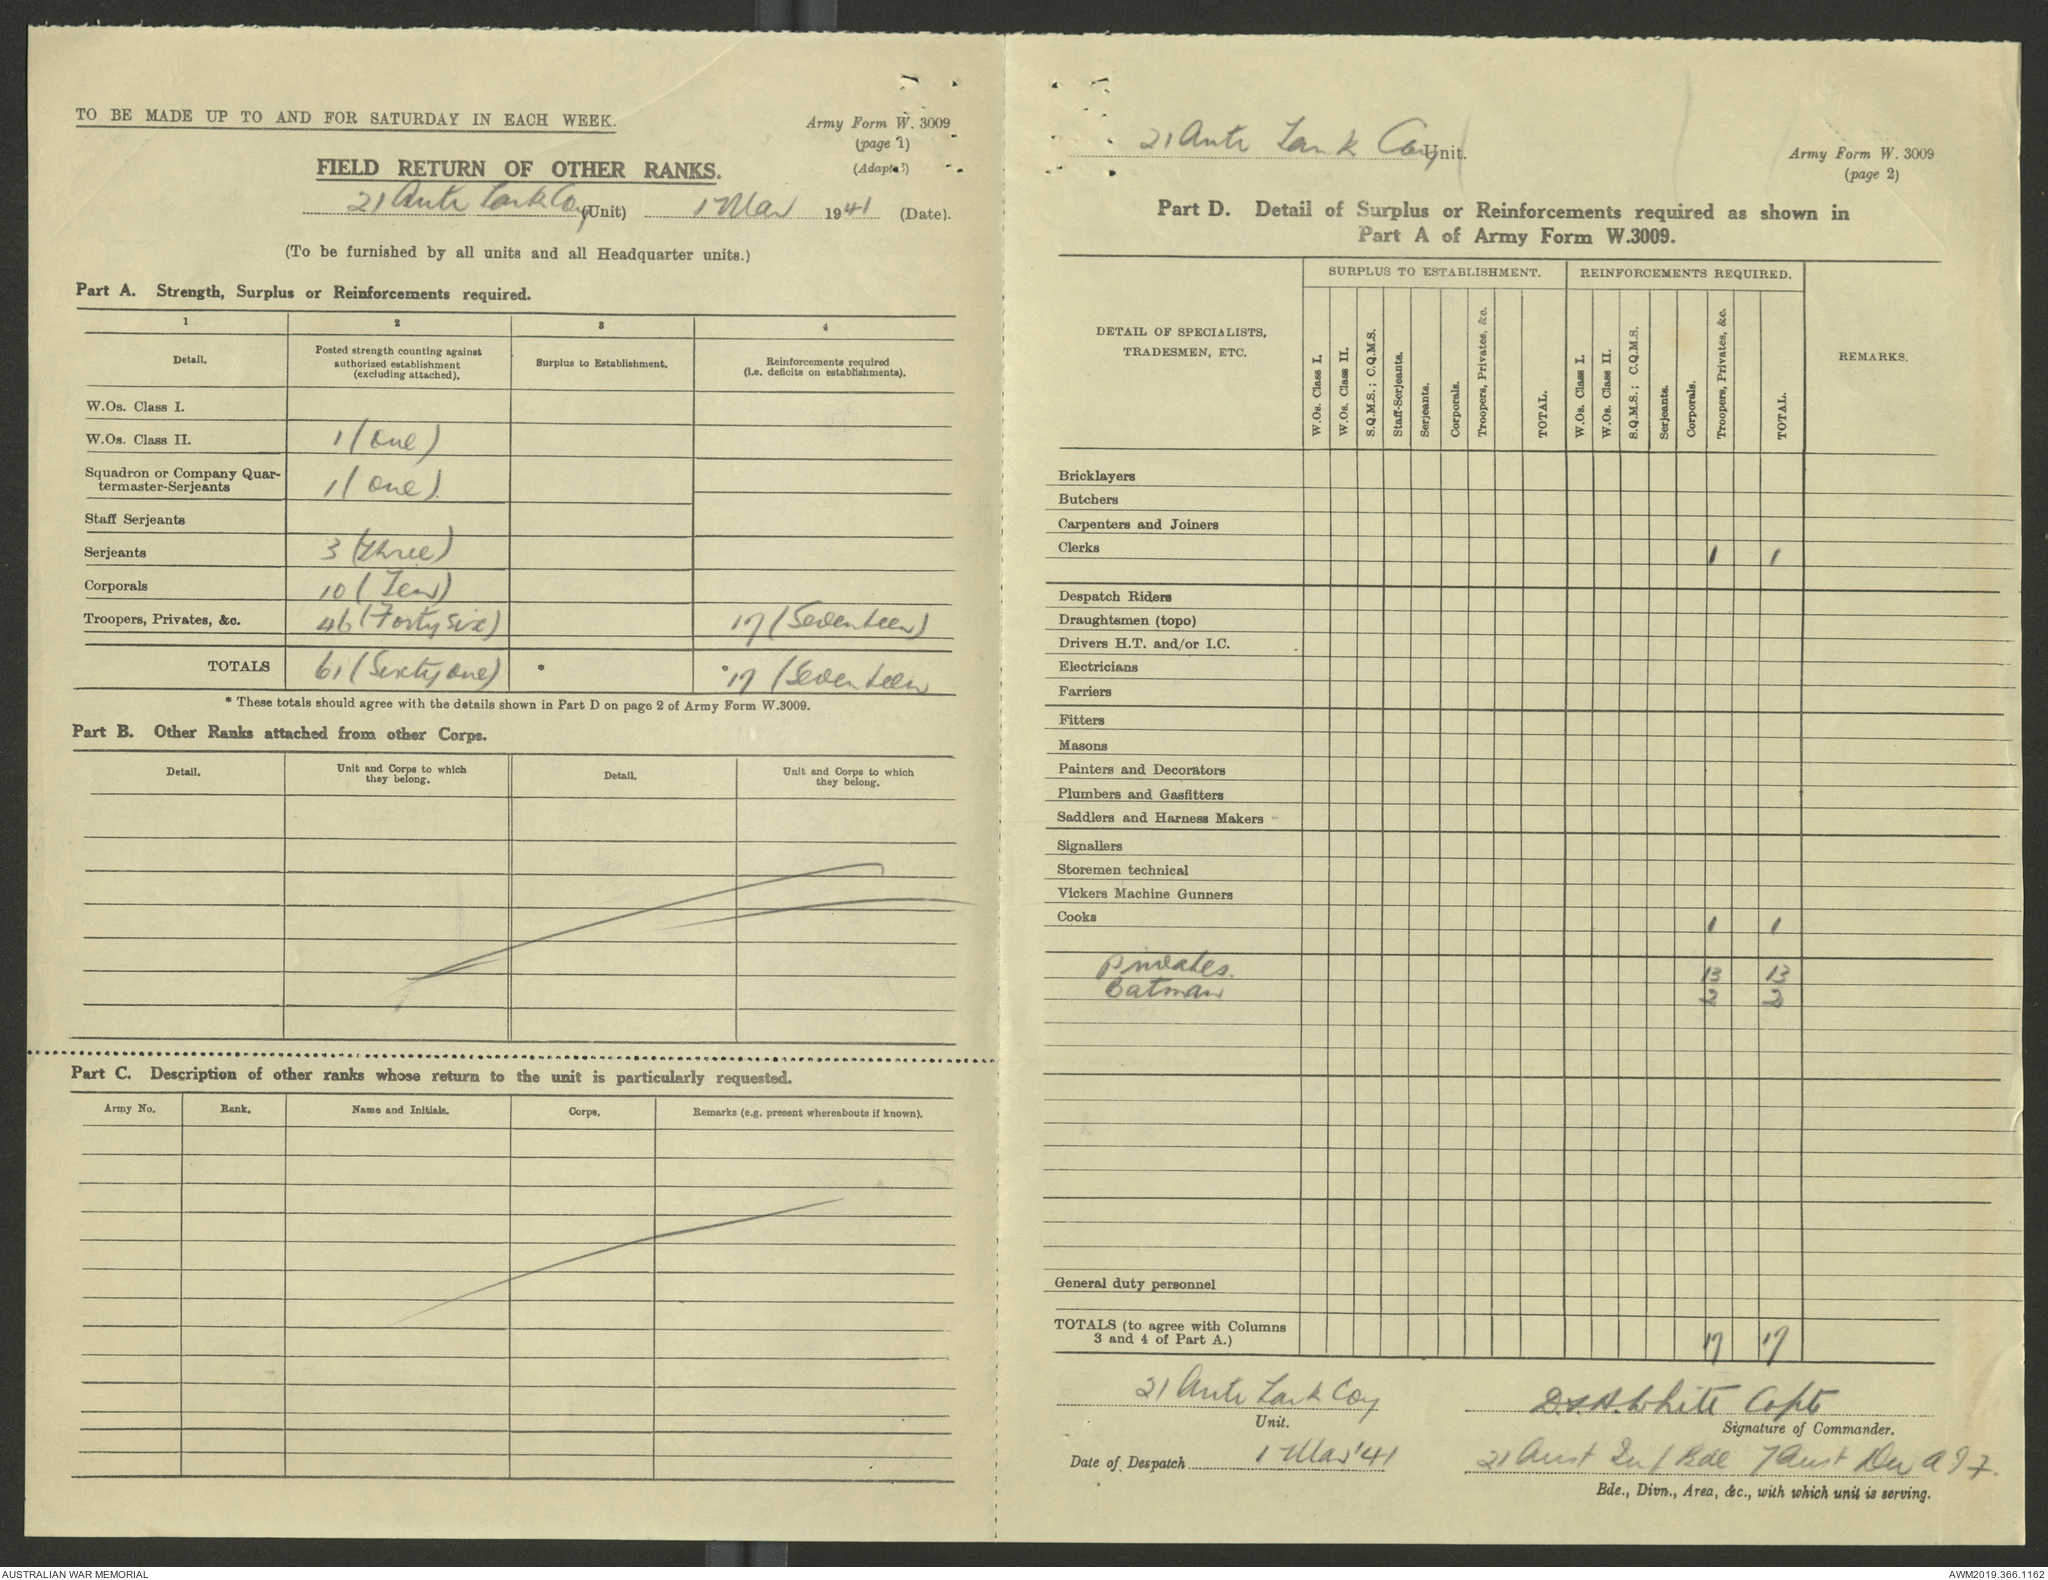 TO BE MADE UP TO AND FOR SATURDAY IN EACH WEEK.
Army Form W. 3009
(page 1)
(Adapted)
FIELD RETURN OF OTHER RANKS.
21 Anti Tank Coy (Unit) 1 Mar 1941 (Date).
(To be furnished by all units and all Headquarter units.)
Part A. Strength, Surplus or Reinforcements required.
1 2 3 4
Detail. Posted strength counting against authorized establishment (excluding attached). Surplus to Establishment. Reinforcements required (i.e. deficits on establishments).
W.Os. Class I.
W.Os. Class II. 1 (One)
Squadron or Company Quar-
termaster-Serjeants 1 (One)
Staff Serjeants
Serjeants 3 (Three)
Corporals 10 (Ten)
Troopers, Privates, &c. 46 (Forty six) 17 (Seventeen)
TOTALS 61 (Sixty one) * *17 (Seventeen
* These totals should agree with the details shown in Part D on page 2 of Army Form W.3009.
Part B. Other Ranks attached from other Corps.
Detail. Unit and Corps to which they belong. Detail. Unit and Corps to which they belong.
Part C. Description of other ranks whose return to the unit is particularly requested.
Army No. Rank. Name and Initials. Corps. Remarks (e.g. present whereabouts if known).
21 Anti Tank Coy Unit.
Army Form W. 3009
(page 2)
Part D. Detail of Surplus or Reinforcements required as shown in
Part A of Army Form W.3009.
DETAIL OF SPECIALISTS, TRADESMEN, ETC.
SURPLUS TO ESTABLISHMENT. REINFORCEMENTS REQUIRED.
REMARKS.
W.Os. Class I. W.Os. Class II. S.Q.M.S.; C.Q.M.S. Staff-Serjeants. Serjeants. Corporals. Troopers, Privates, &c. TOTAL. W.Os. Class I. W.Os. Class II. S.Q.M.S.; C.Q.M.S. Serjeants. Corporals. Troopers, Privates, &c. TOTAL.
Bricklayers
Butchers
Carpenters and Joiners
Clerks 1 1
Despatch Riders
Draughtsmen (topo)
Drivers H.T. and/or I.C.
Electricians
Farriers
Fitters
Masons
Painters and Decorators
Plumbers and Gasfitters
Saddlers and Harness Makers
Signallers
Storemen technical
Vickers Machine Gunners
Cooks 1 1
Privates. 13 13
Batman 2 2
General duty personnel
TOTALS (to agree with Columns
3 and 4 of Part A.) 17 17
21 Anti Tank Coy
Unit.
D.S.H. White Capt
Signature of Commander.
Date of Despatch 1 Mar '41
21 Aust Inf Bde 7 Aust Div A I F.
Bde., Divn., Area, &c., with which unit is serving.
AUSTRALIAN WAR MEMORIAL
AWM2019.366.1162